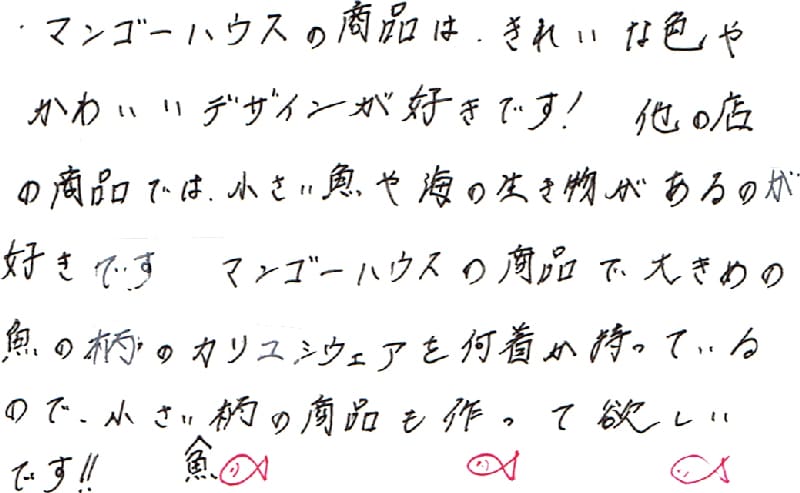 ・マンゴーハウスの商品は、きれいな色や
かわいいデザインが好きです！ 他の店
の商品では、小さい魚や海の生き物があるのが
好きです マンゴーハウスの商品で、大きめの
魚の柄のカリユシウェアを何着か持っている
ので、小さい柄の商品も作って欲しい
です!! 魚